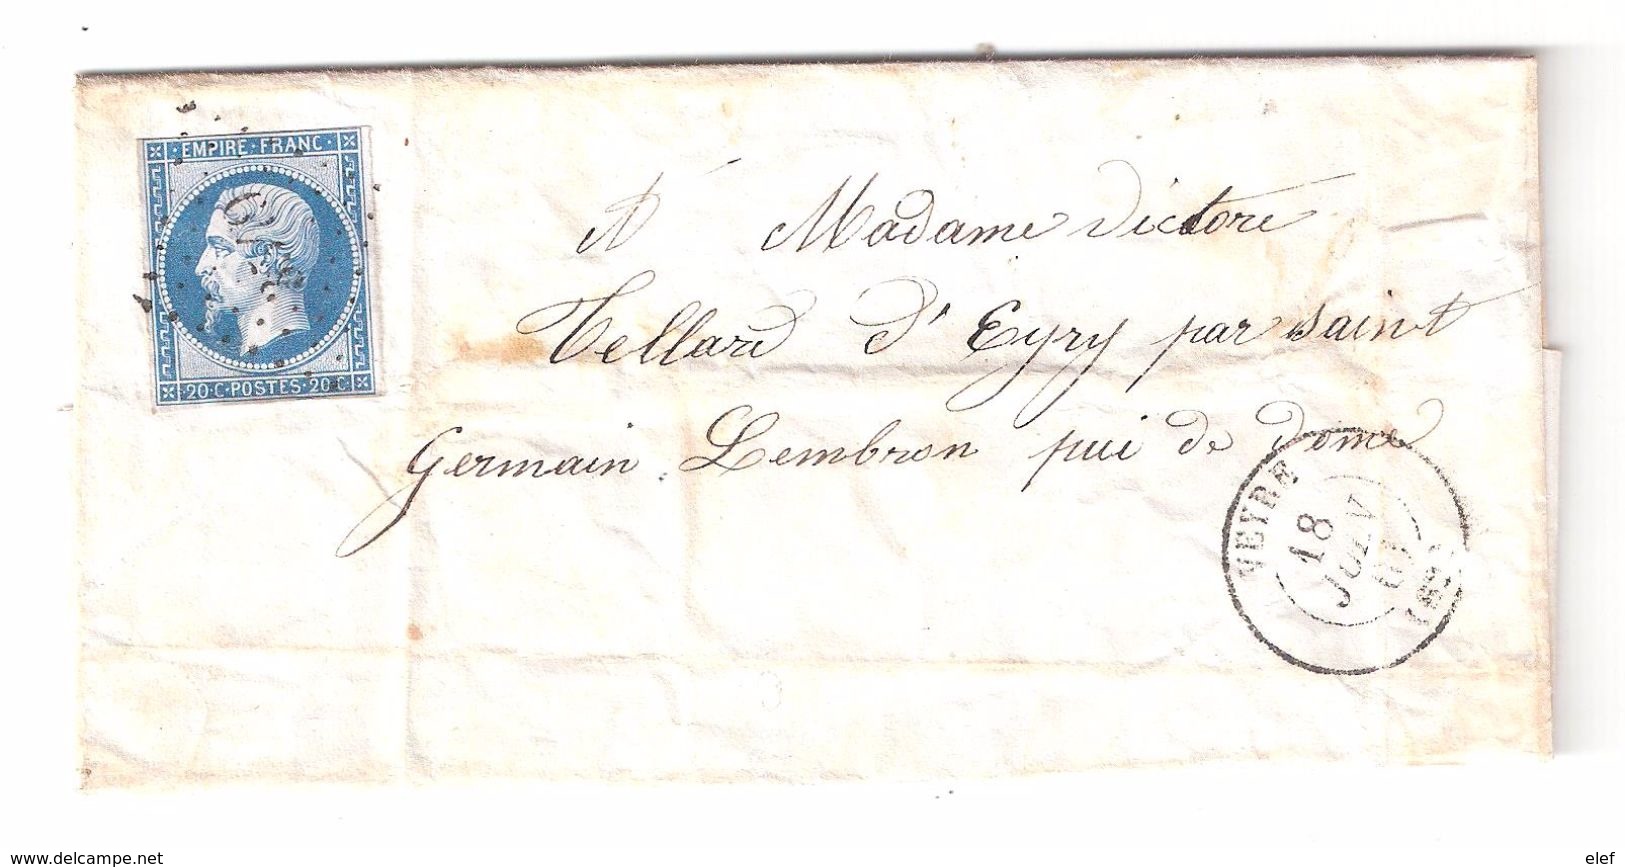 EMPIRE · FRANC
20 · C · POSTES · 20 · C
A Madame Victore
Tellard d'Eyry par saint
Germain Lembron pui de dome
VEYRE
18
JUIN
www.delcampe.net
elef